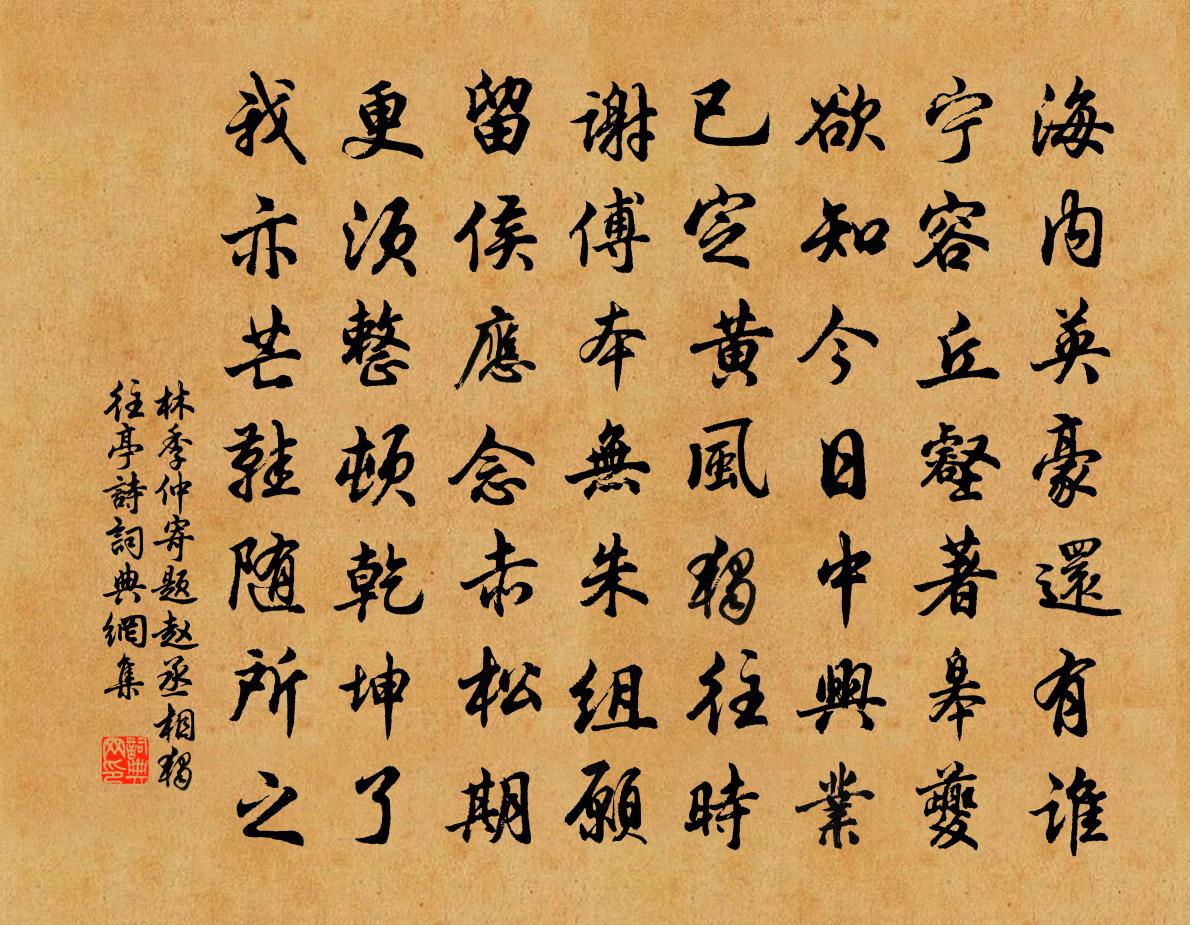 海内英豪還有谁
宁容丘壑著皋夔
欲知今日中興業
已定黄風獨往時
谢傅本無朱组願
留侯應念赤松期
更须整顿乾坤了
我亦芒鞋随所之
林季仲寄题赵丞相獨
往亭詩詞典網集
詞典网印